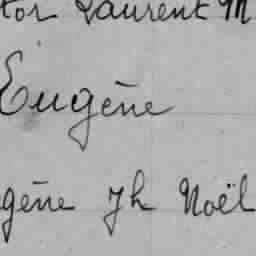 tor Laurent M
Eugène
gène Jh Noël